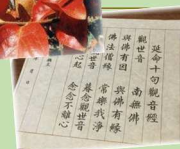 延命十句觀音經
觀世音 南無佛
與佛有因 與佛有緣
佛法僧緣 常樂我淨
暮念觀世音
心起 念念不離心